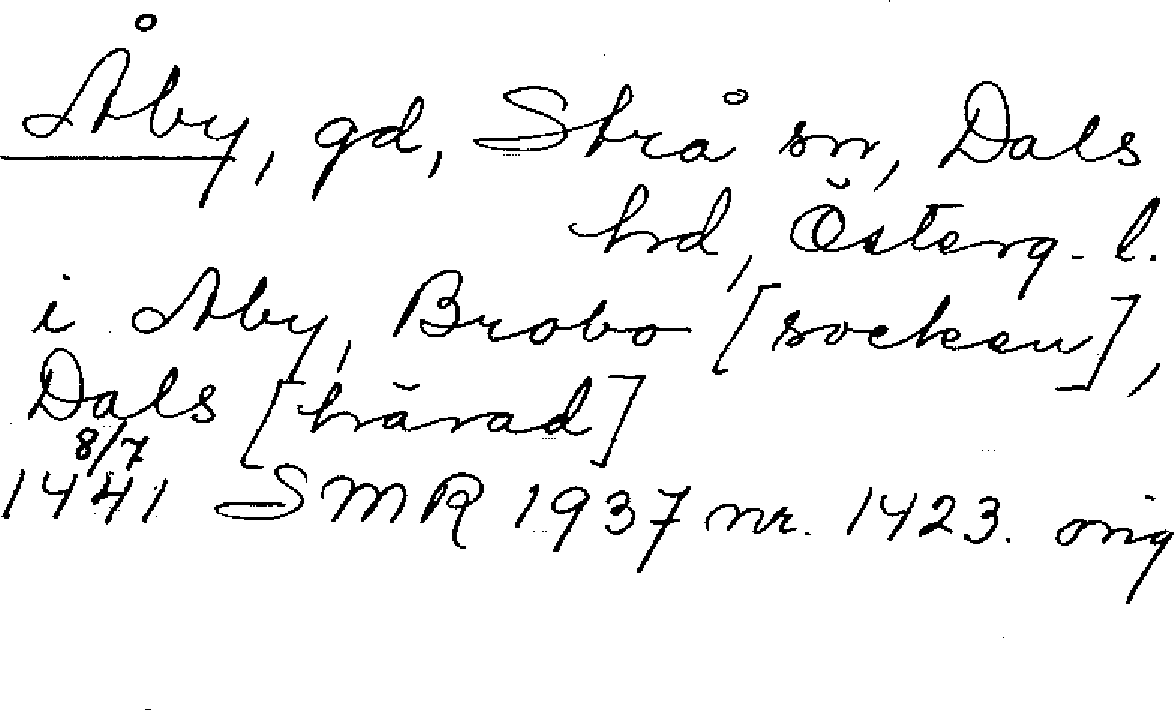 Åby, gd, Strå sn, Dals
hrd, Österg. l.
i Aby, Brobo [socken],
Dals [härad]
8/7
1441 SMR 1937 nr. 1423. orig